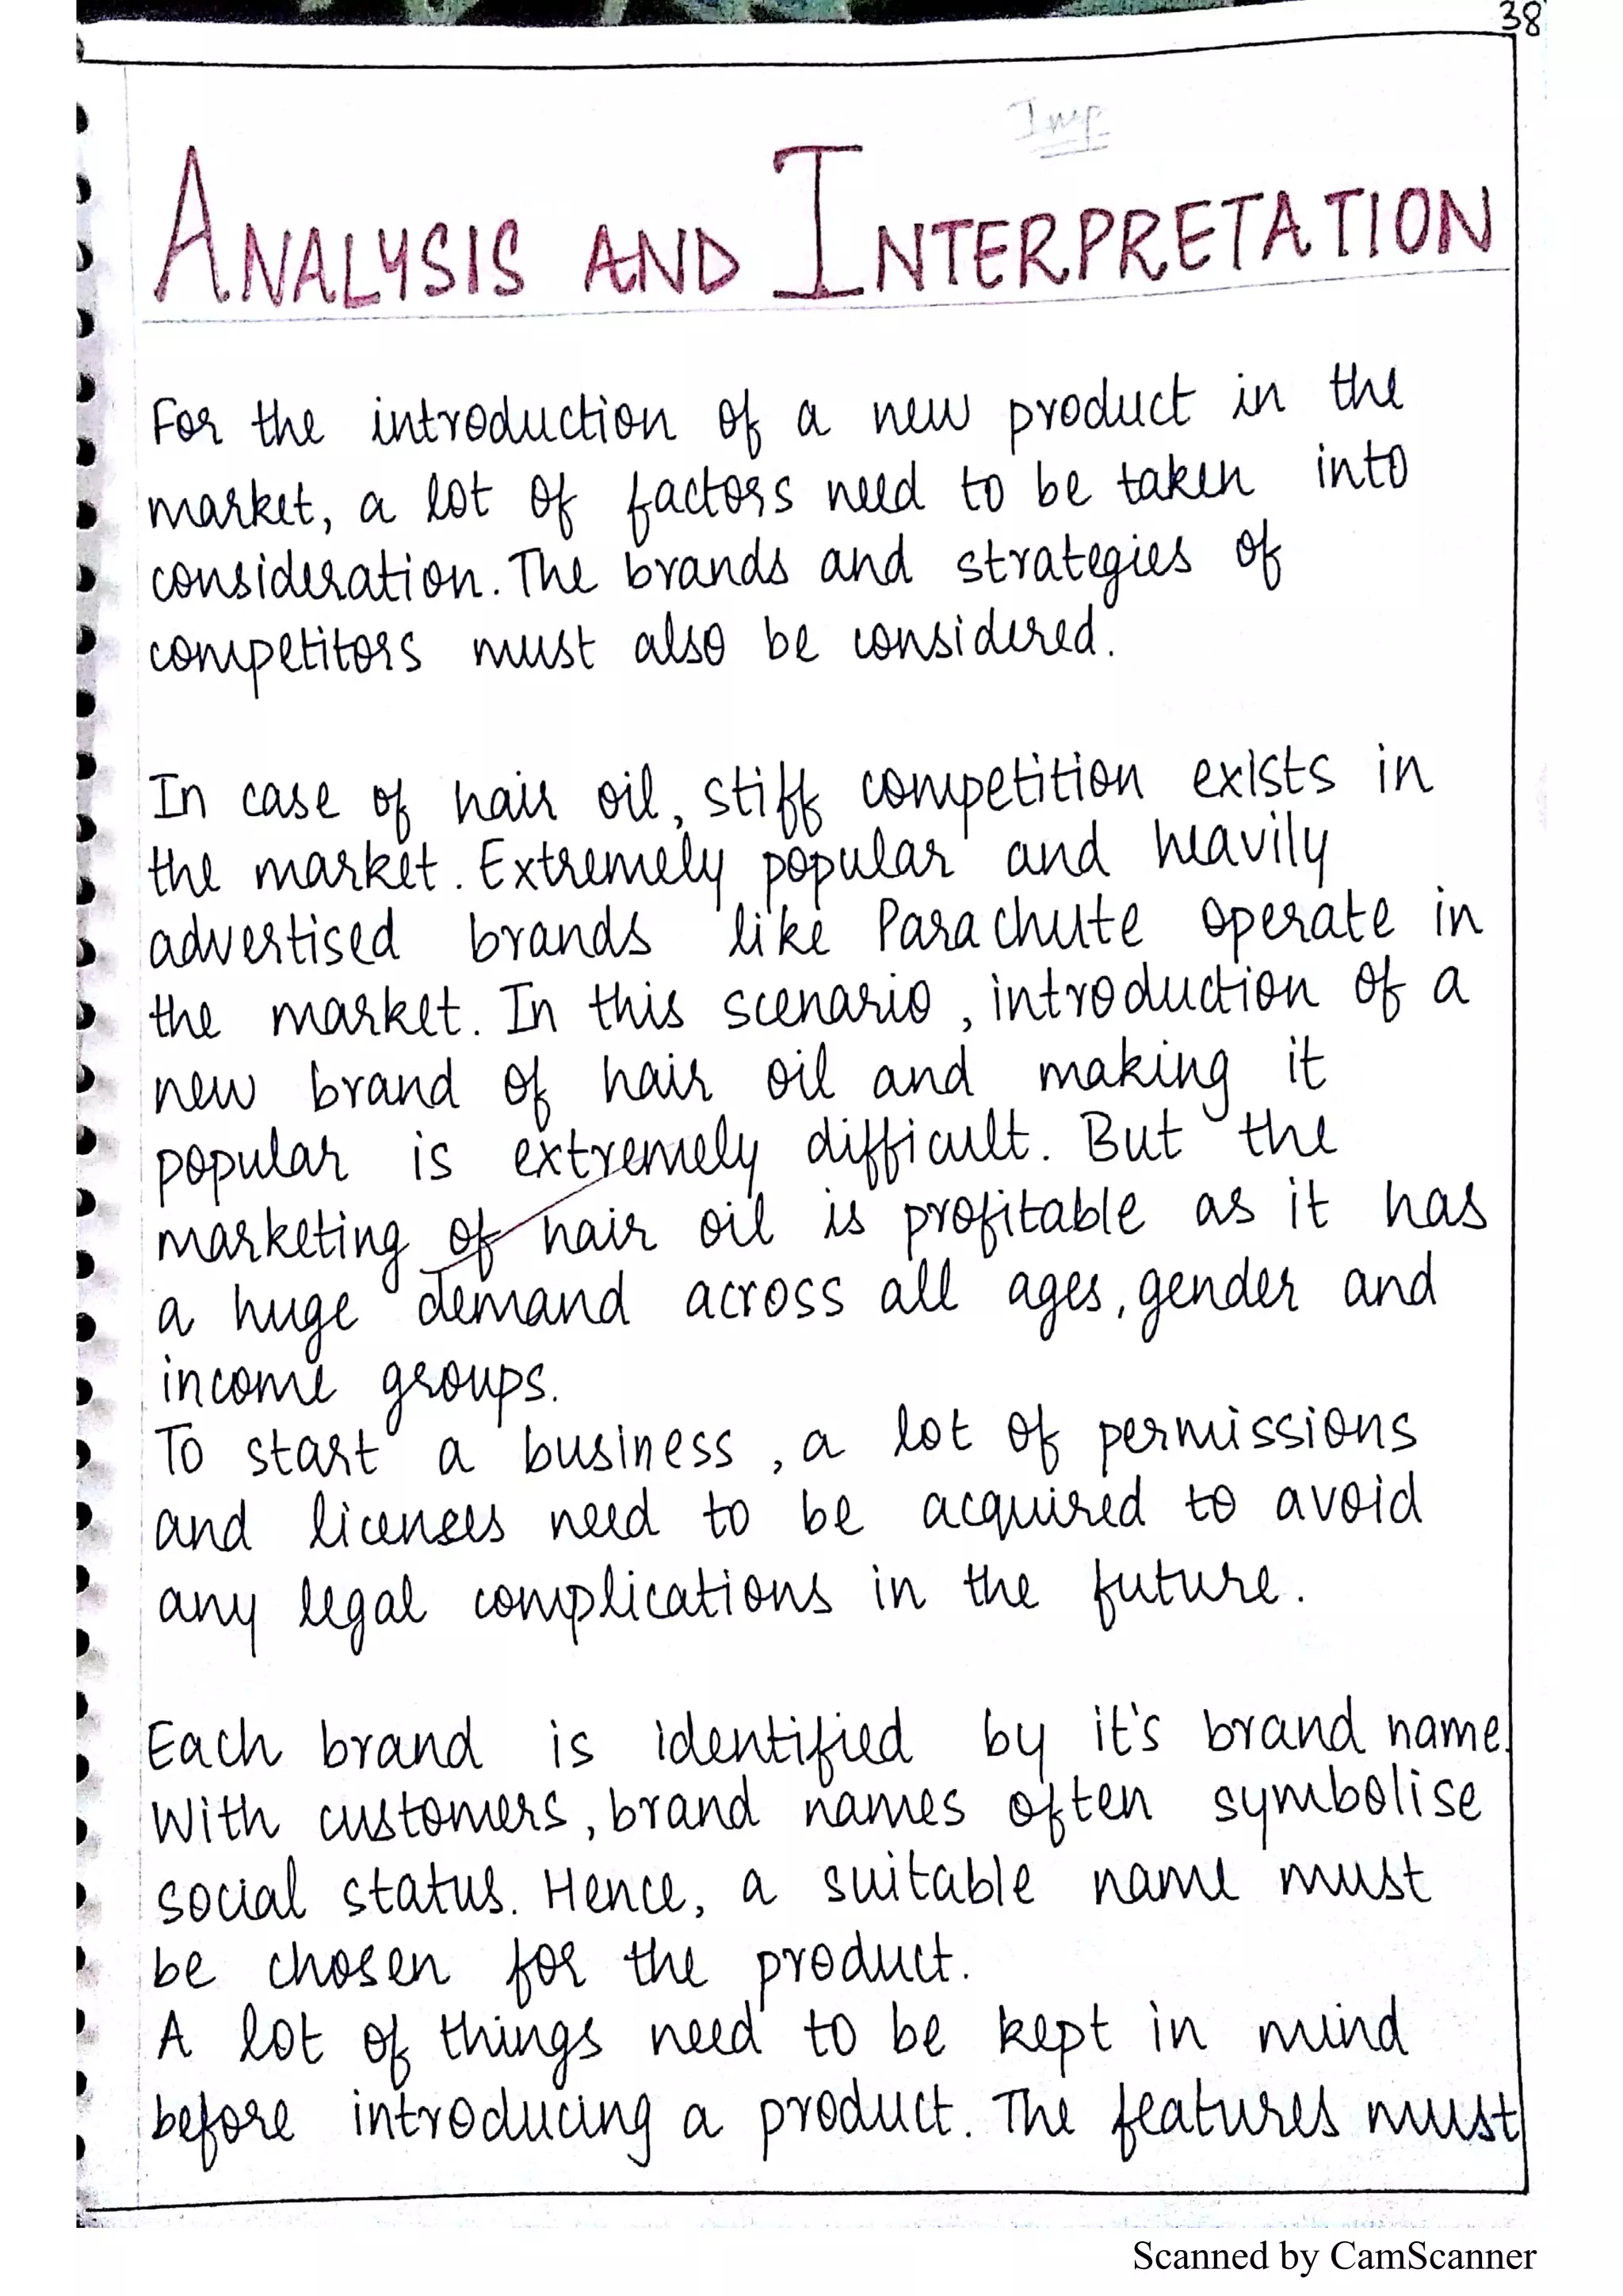 38
Imp
ANALYSIS AND INTERPRETATION
For the introduction of a new product in the
market, a lot of factors need to be taken into
consideration. The brands and strategies of
competitors must also be considered.
In case of hair oil, stiff competition exists in
the market. Extremely popular and heavily
advertised brands like Parachute operate in
the market. In this scenario, introduction of a
new brand of hair oil and making it
popular is extremely difficult. But the
marketing of hair oil is profitable as it has
a huge demand across all ages, gender and
income groups.
To start a business, a lot of permissions
and licenses need to be acquired to avoid
any legal complications in the future.
Each brand is identified by it's brand name.
With customers, brand names often symbolise
social status. Hence, a suitable name must
be chosen for the product.
A lot of things need to be kept in mind
before introducing a product. The features must
Scanned by CamScanner